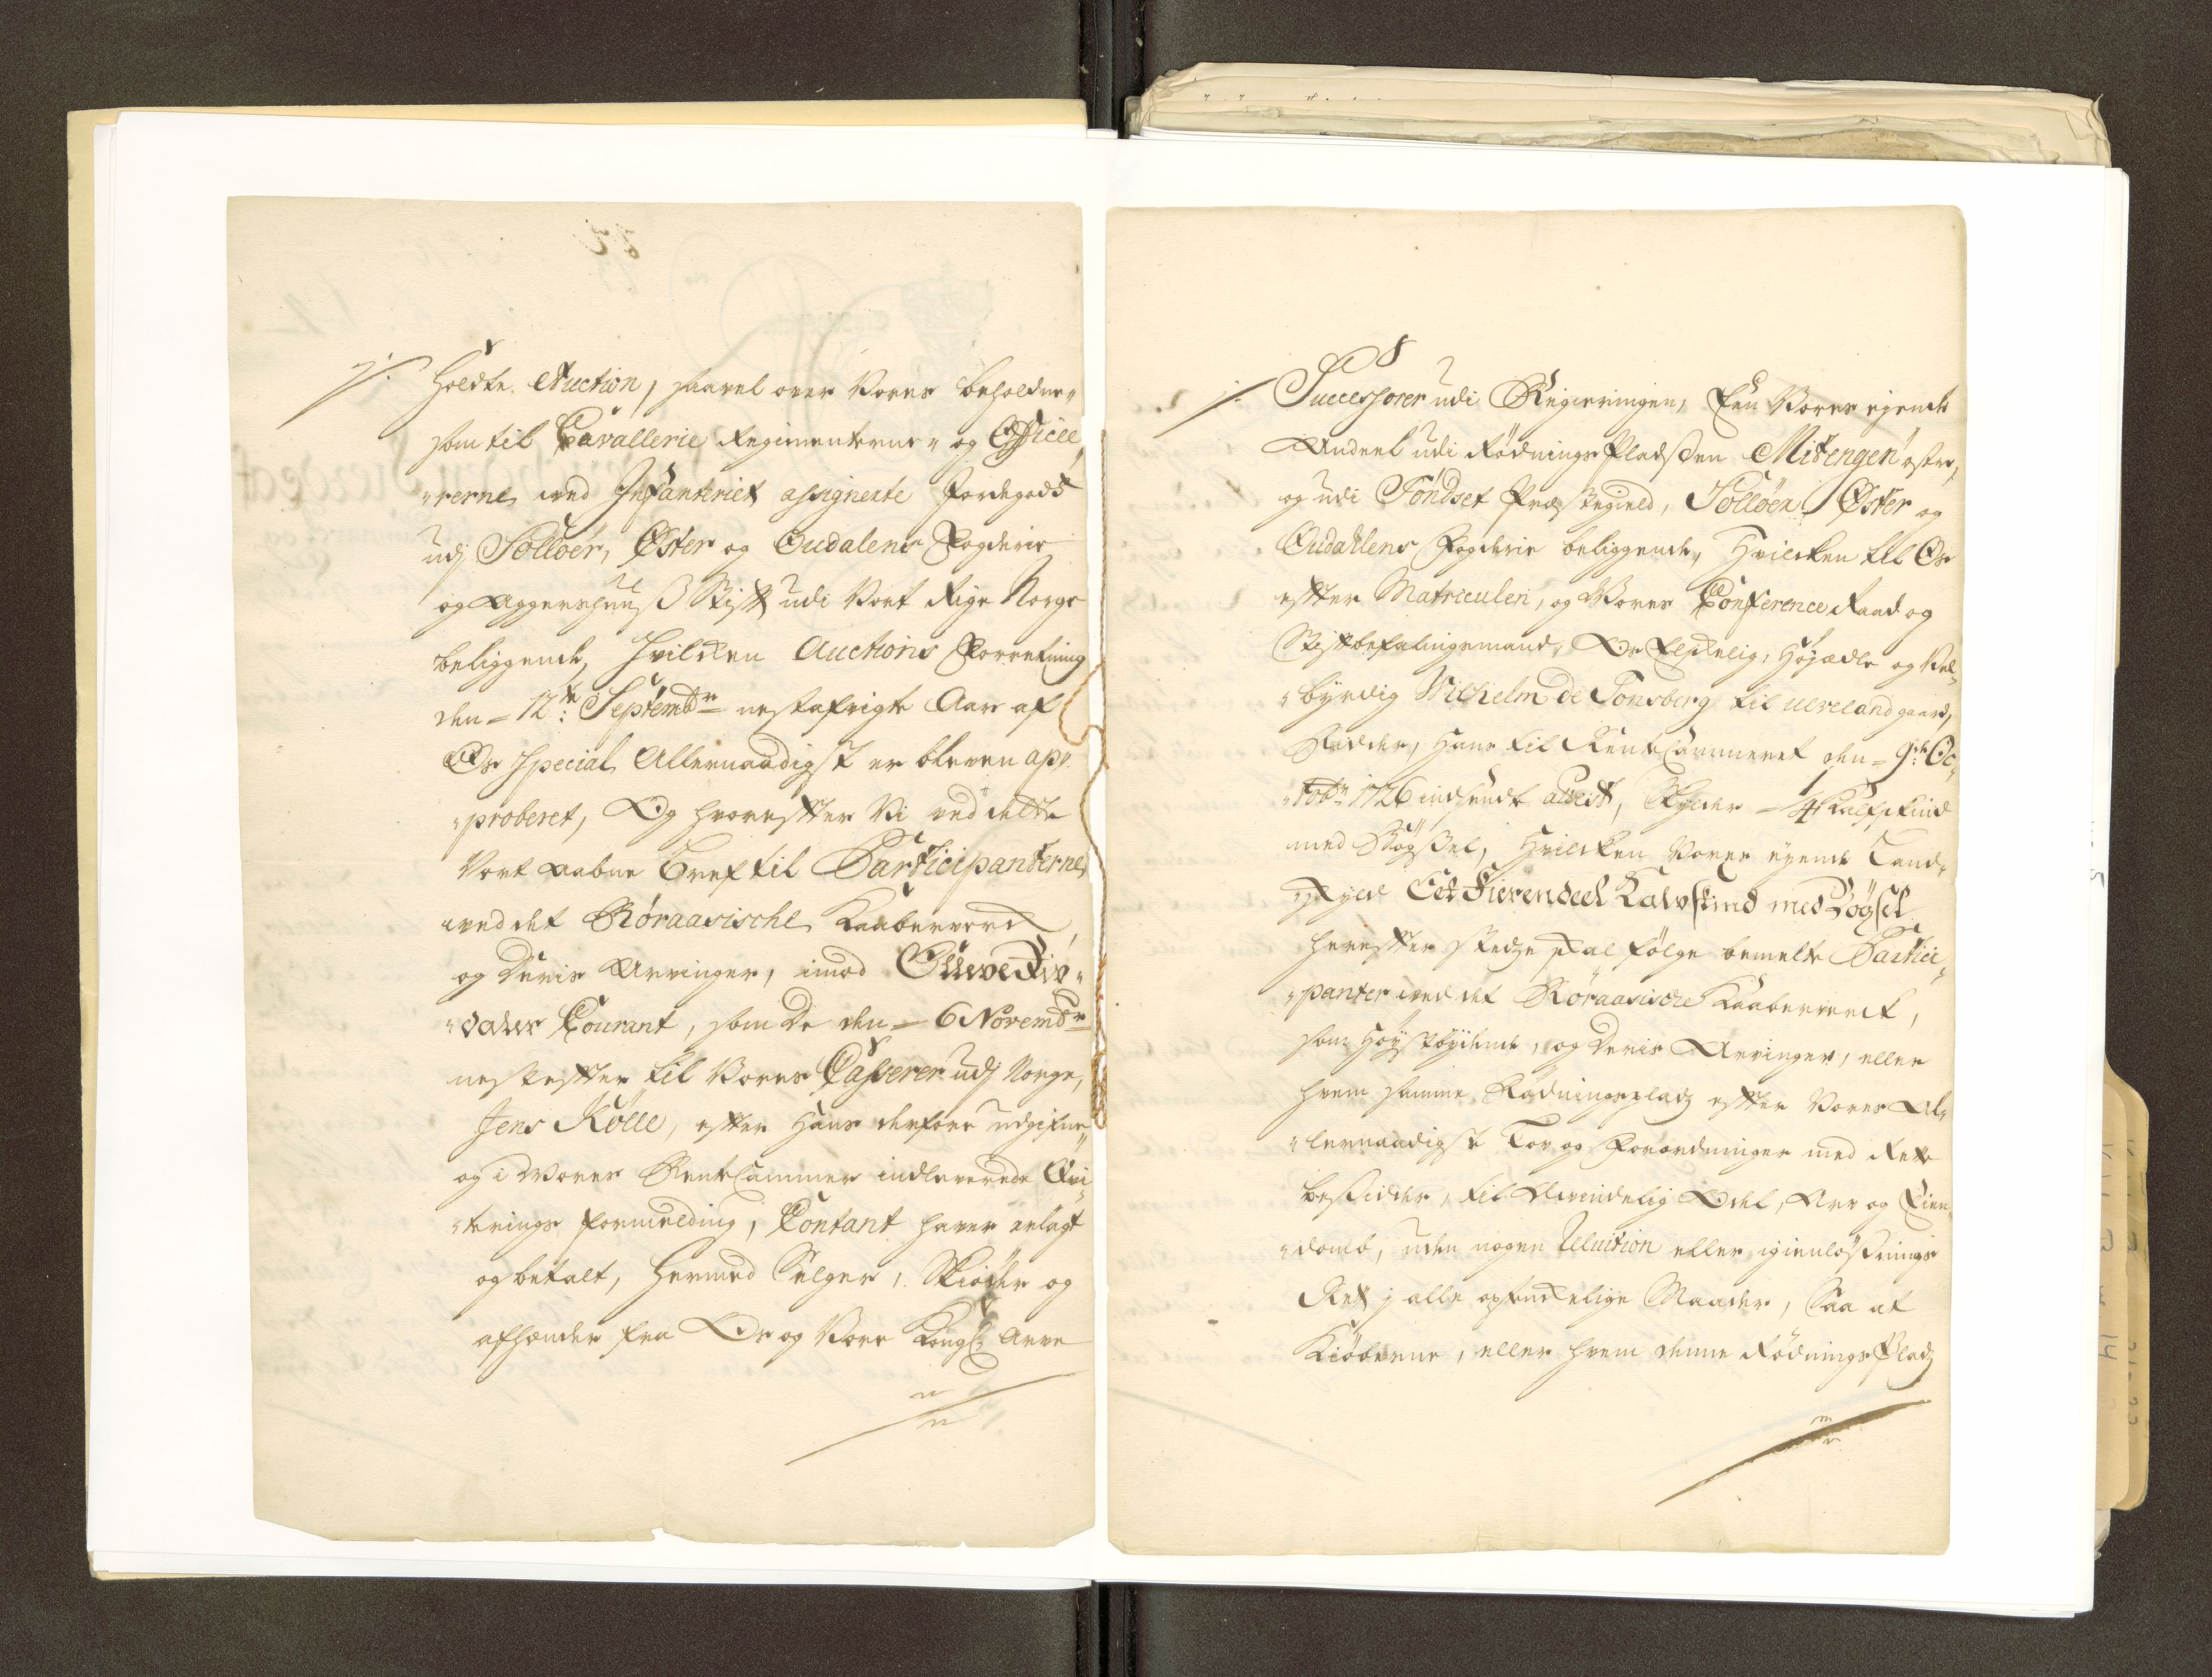 Holdte Auction, saavel over Vores beholdne
som til Cavallerie Regimenterne og Officee,
,rerne ved Infanteriet assignerte Jordegods
udj Solloer, Øster og Oudalens Fogderie
og Aggershuuß Stift udi Vort Rige Norge
beliggende, Hvilcken Auctions Forretning
den 12te Septembr nestafvigte Aar af
Os special Allernaadigst er bleven ap,
,proberet, Og hvorefter Vi ved dette
Vort Aabne Bref til Participanterne
ved det Røraasische Kaaberverck,
og Deris Arvinger, imod Tuve Riv,
,daler Courant, som De den 6 Novembr
nestefter til Vores Casserer udj Norge,
Jens Kølle, efter Hans derfore udgifne
og i Vores Rente Cammer indleverede Qvi,
,terings formelding, Contant haver erlagt
og betalt, hermed Selger, Skiøder og
afhænder fra Os og Vore Kongl: Arve
Successorer udi Regieringen, Een Vores ejende
Andeel udi Rødnings Pladsen Mitengen østre,
og udi Tøndset Præstegield, Solloer, Øster og
Oudahlens Fogderie beliggende, Hvilcken till Os
efter Matriculen, og Vores Conference Raad og
Stiftbefalingsmand, Os Elskelig, Høyædle og Vel,
,byrdig Vilhelm de Tonsberg til Ulvelandgaard,
Ridder, Hans til Rente Cammeret den 9de Oc,
,tobr 1726 indsendt attest, Skylder 1/4 Kalfskind
med Bøgßel, Hvilcken Vores ejende Land,
,skyld Eet Fierendeel Kalvskind med Bøgsel
herefter stedze skal følge bemelte Partici,
,panter ved det Røraasische Kaaberverck,
som Høystbydende, og Deris Arvinger, eller
hvem samme Rødningsplads efter Vores Al,
,lernaadigste Lov og Forordninger med Rette
besidder, til Ævindelig Odel, Arv og Eien,
,domb, uden nogen Reluition eller igienløsnings
Ret j alle optenckelige Maader, Saa at
Kiøberne, eller hvem denne Rødnings Plads